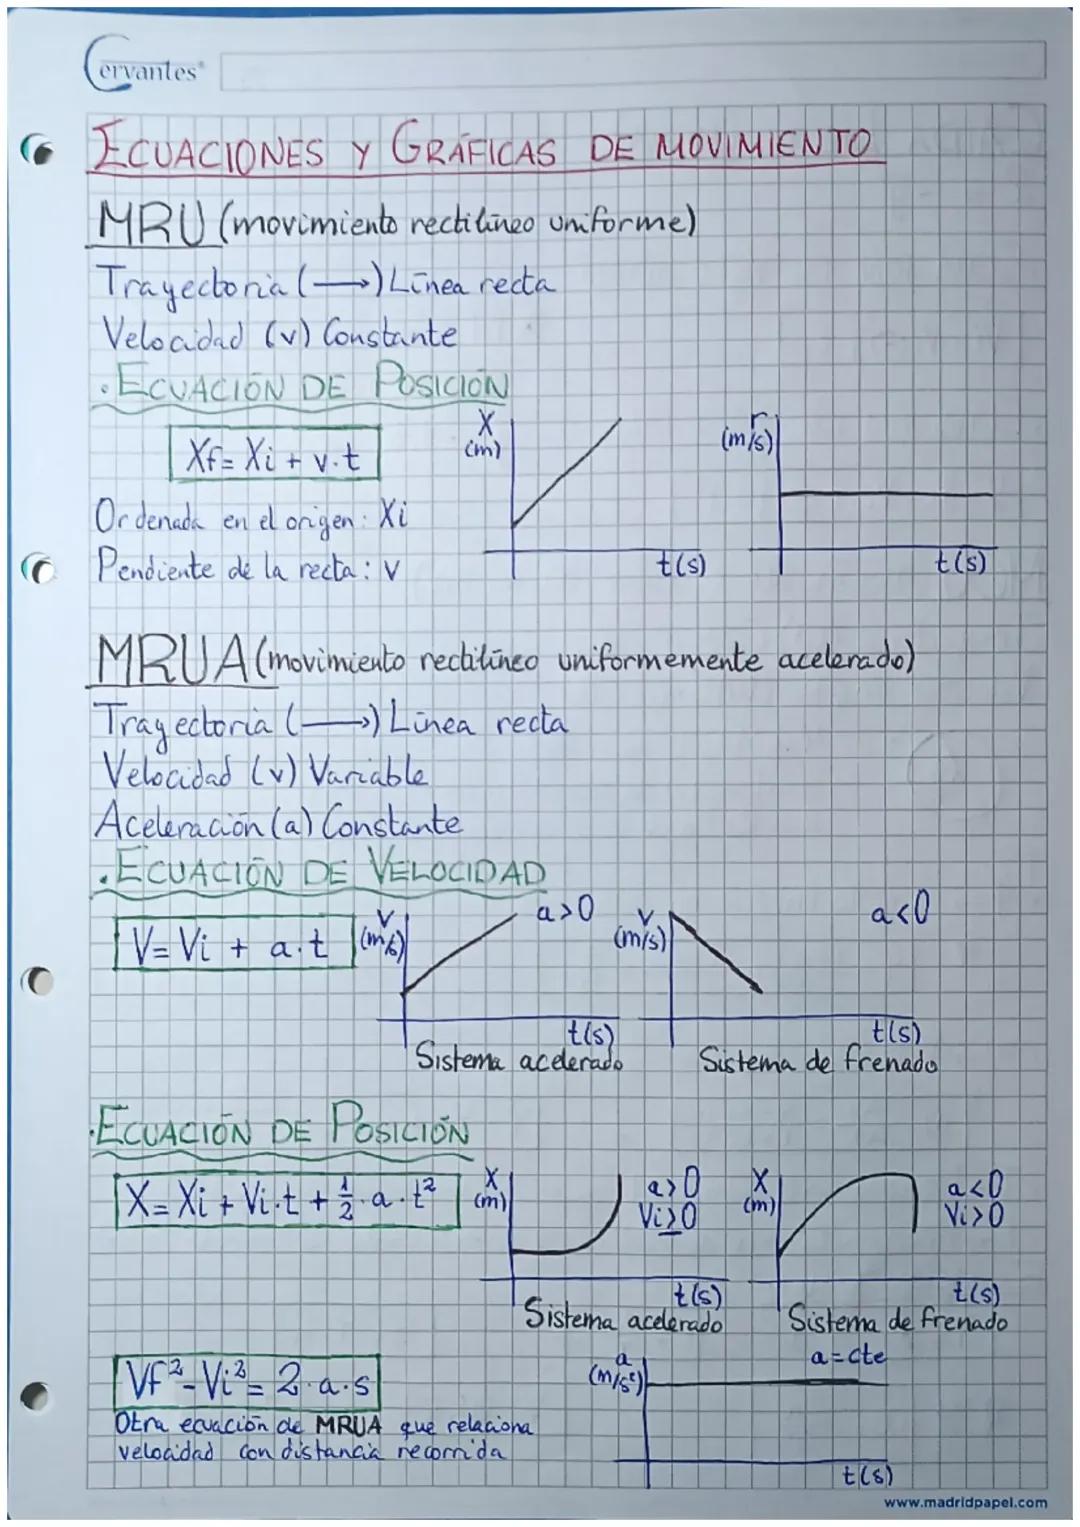 Cervantes
ECUACIONES Y GRÁFICAS DE MOVIMIENTO
MRU (movimiento rectilíneo uniforme)
Trayectoria (→) Línea recta
Velocidad (v) Constante
· ECUACIÓN DE POSICIÓN
Xf= Xi + v·t
X
(m)
t(s)
(m/s)
t(s)
Ordenada en el origen: Xi
Pendiente de la recta: v
MRUA (movimiento rectilíneo uniformemente acelerado)
Trayectoria (→) Línea recta
Velocidad (v) Variable
Aceleración (a) Constante
· ECUACIÓN DE VELOCIDAD
V= Vi + a·t
V
(m/s)
a>0
t(s)
Sistema acelerado
V
(m/s)
a<0
t(s)
Sistema de frenado
· ECUACIÓN DE POSICIÓN
X= Xi + Vi·t + 1/2·a·t²
X
(m)
a>0
Vi≥0
t(s)
Sistema acelerado
X
(m)
a<0
Vi>0
t(s)
Sistema de frenado
Vf²-Vi²= 2·a·s
Otra ecuación de MRUA que relaciona
velocidad con distancia recorrida
a
(m/s²)
a=cte
t(s)
www.madridpapel.com